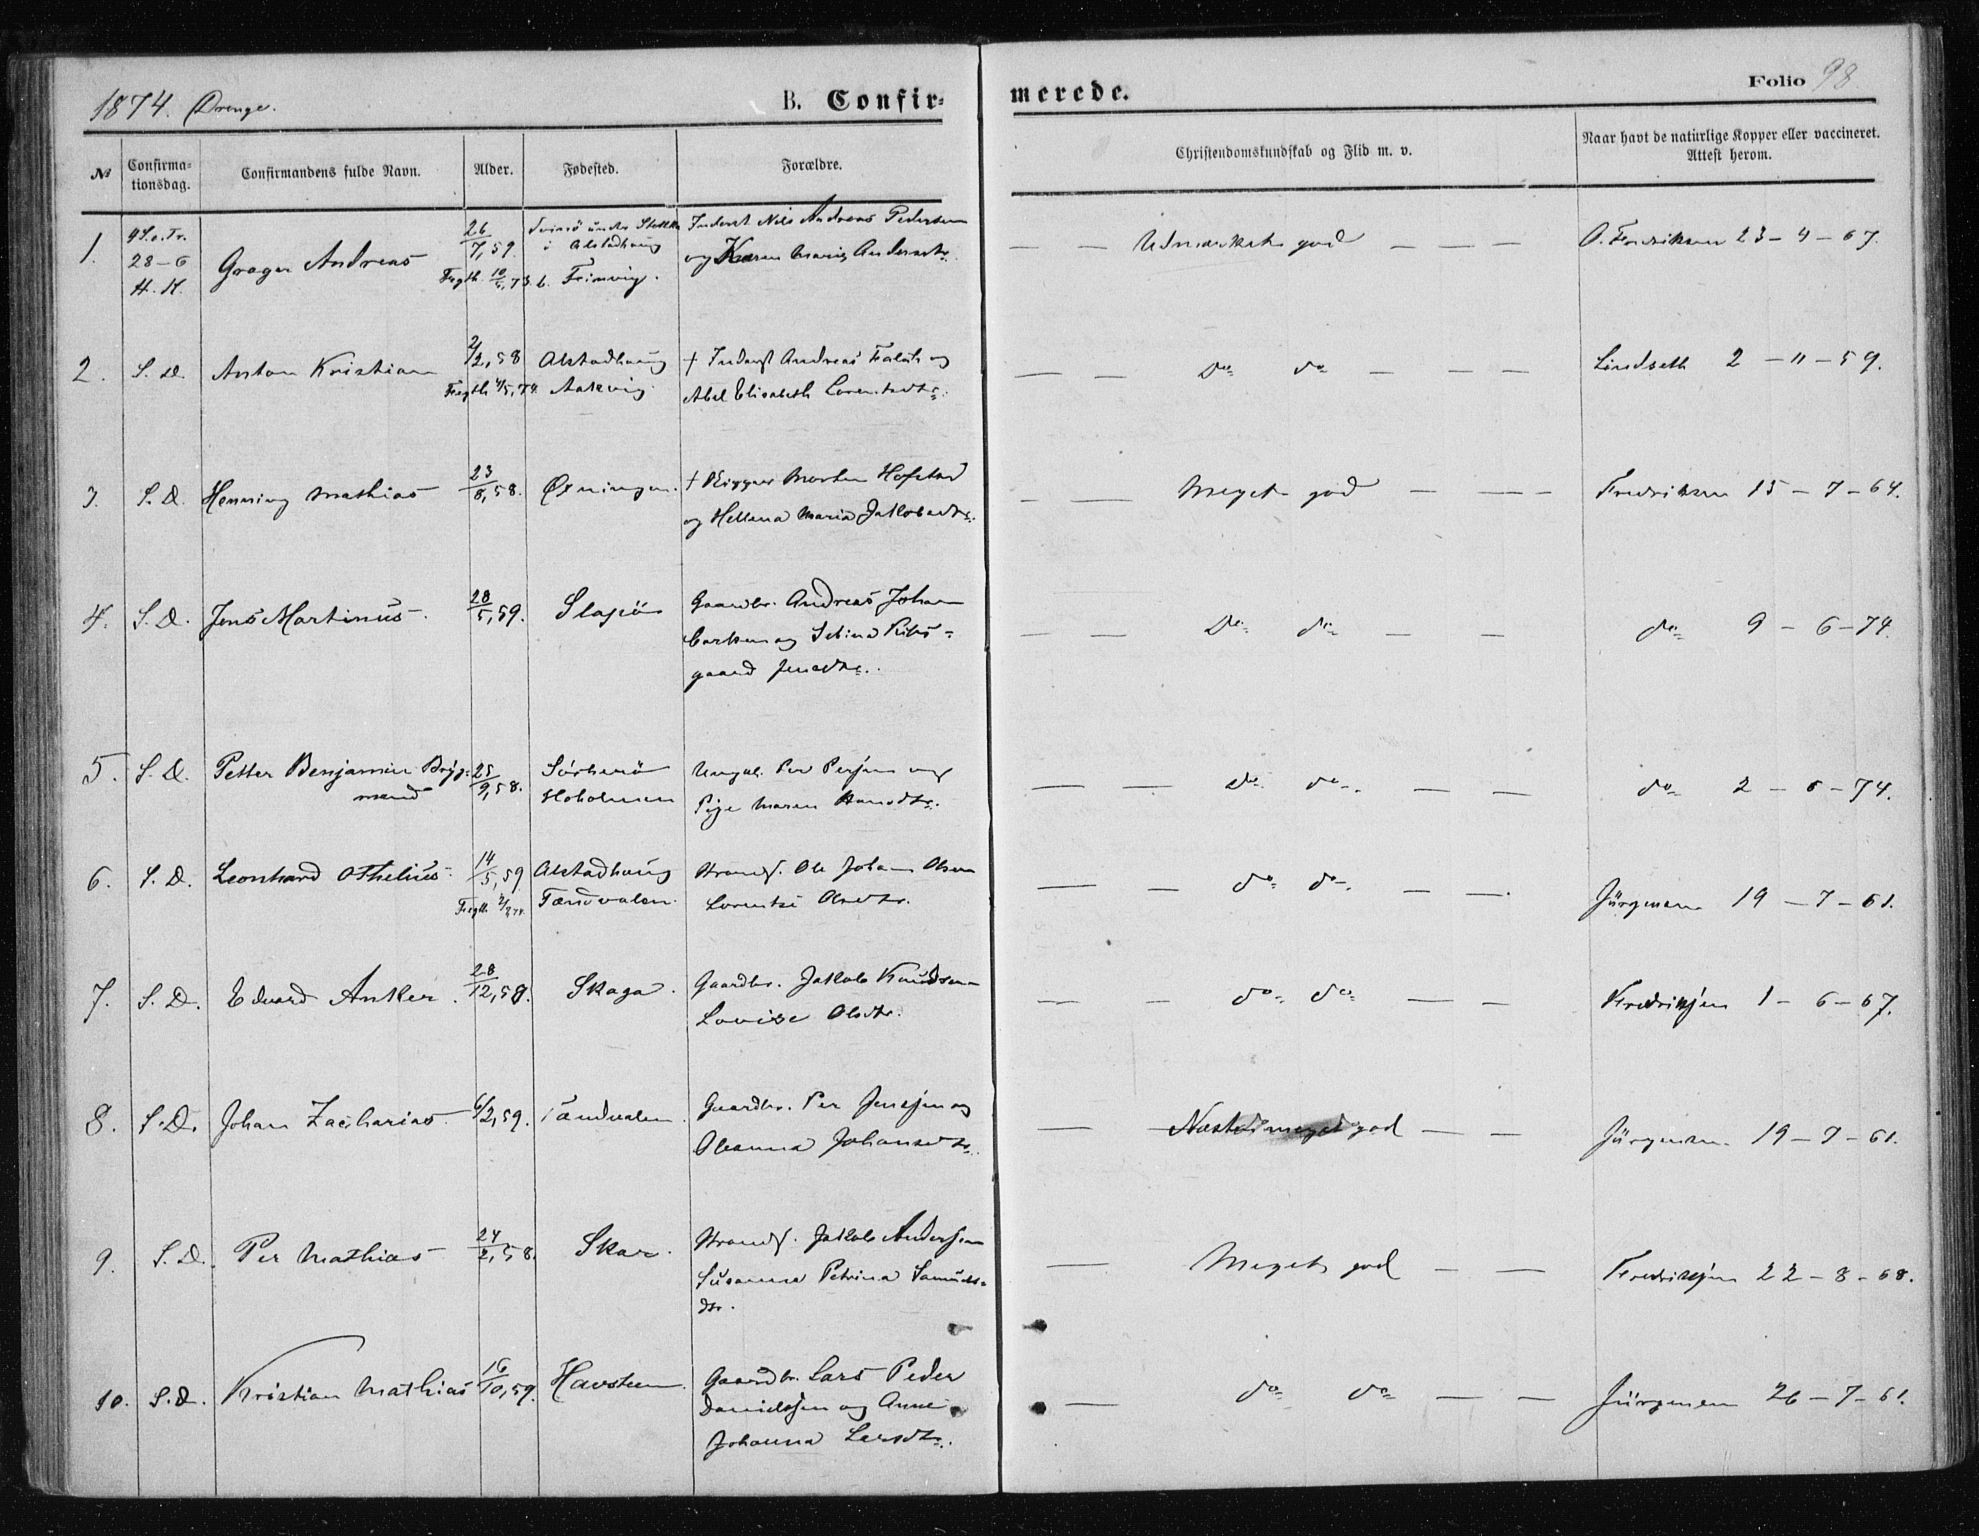 1874. Drenge.
B. Confirmerede.
Folio 98
№
Confirmationsdag.
Confirmandens fulde Navn.
Alder.
Fødested.
Forældre.
Christendomskundskab og Flid m. v.
Naar havt de naturlige Kopper eller vaccineret. Attest herom.
1.
4 S. e. Tr.
28-6
H. K.
Andreas
26/7,59.
i Alstadhaug
Inderst Nils Andreas Pedersen
og Karen Maria Andersdtr.
— — Udmærket god — — —
O. Fredriksen 23-4-67.
2. S. D. Anton Kristian
2/2,58
Alstadhaug
† Inderst Andreas Falch og
Abel Elisabeth Lorentsdtr.
— — Do do — — —
Lindseth 2-11-59.
3. S. D. Henning Mathias
23/8,58.
Øxningen.
† Rigger Morten Hofstad
og Hellena Maria Jakobsdtr.
— — Meget god — — —
Fredriksen 15-7-64.
4. S. D. Jens Martinus.
28/5,59.
Slapø
Gaardbr. Andreas Johan
gaard Jensdtr.
— — Do do — —
do 9-6-74.
5. S. D. Petter Benjamin Bryg-
mand
25/9,58.
Hoholmen
Ungk. Per Persen og
Pige Maren Hansdtr.
— — Do do. — —
do 2-6-74.
6. S. D. Leonhard Othelius.
14/5,59
Alstadhaug
Tandvalen.
Strands. Ole Johan Olsen
Lorentse Olsdtr.
— — do do. — —.
Jürgensen 19-7-61.
7. S. D. Edvard Anker.
28/12,58.
Skaga.
Gaardbr. Jakob Knudsen
Lovise Olsdtr.
— — do do — —
Fredriksen 1-6-67.
8. S. D. Johan Zacharias
6/2,59.
Tandvalen.
Gaardbr. Per Jensen og
Oleanna Johansdtr.
— Næsten meget god — —
Jürgensen 19-7-61.
9. S. D. Per Mathias
24/2,58.
Skar.
Strands. Jakob Andersen
Susanna Petrina Samuels-
dtr.
— Meget god — —
Fredriksen 22-8-68.
10. S. D. Kristian Mathias
16/10,59.
Havsteen.
Gaardbr. Lars Peder
Danielssen og Anne
Johanna Larsdtr.
— do do — —
Jürgensen 26-7-61.